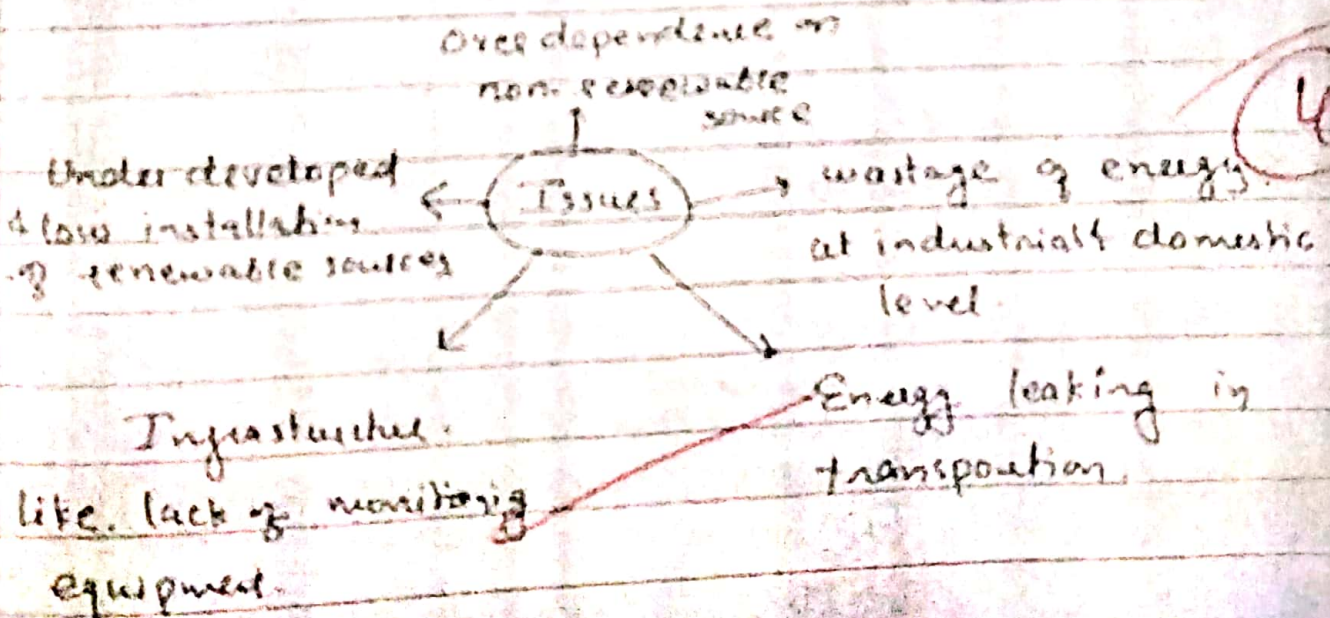 Over dependence on
non-renewable
source
Underdeveloped
& low installation
of renewable sources
Issues
wastage of energy
at industrial & domestic
level.
Infrastructure.
like. lack of monitoring
equipment.
Energy leaking in
transportion.